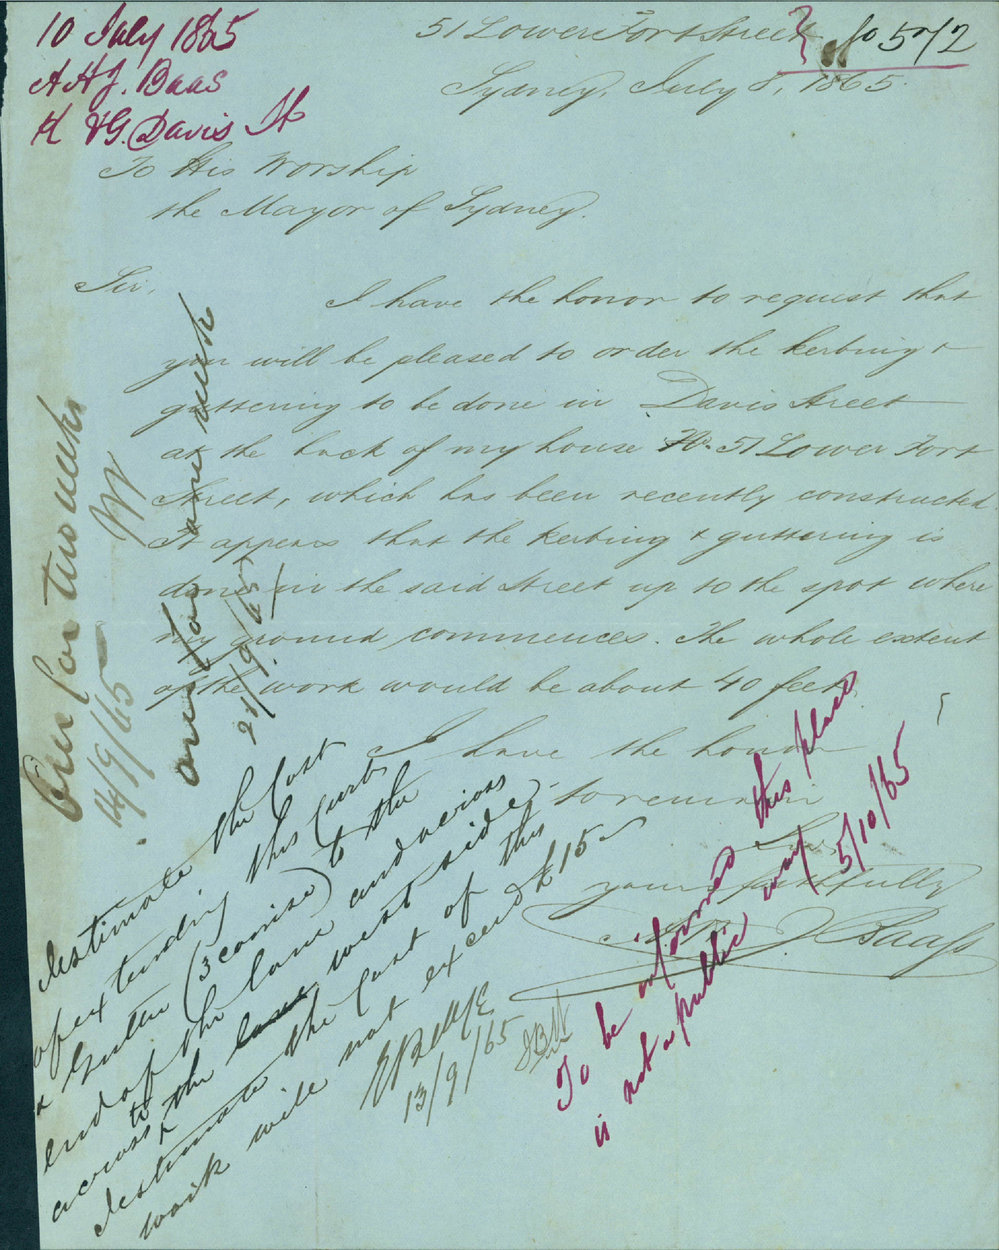 10 July 1865
A H J. Baas
K & G. Davis St
No 572
51 Lower Fort Street
Sydney, July 8, 1865.
To His Worship
the Mayor of Sydney.
Sir,
I have the honor to request that
you will be pleased to order the kerbing &
guttering to be done in Davis Street
at the back of my house No. 51 Lower Fort
Street, which has been recently constructed.
It appears that the kerbing & guttering is
done in the said Street up to the spot where
my ground commences. The whole extent
of the work would be about 40 feet.
I have the honor
to remain
Sir,
yours faithfully
J Baass
Over for two weeks
14/9/65
over for one week
21/9/65
I estimate the Cost
of extending this Curb
& Gutter (3 courses) to the
end of the lane and across
across to the lane west side
& I estimate the Cost of this
work will not exceed £15
13/9/65
To be informed this place
is not a public way 5/10/65